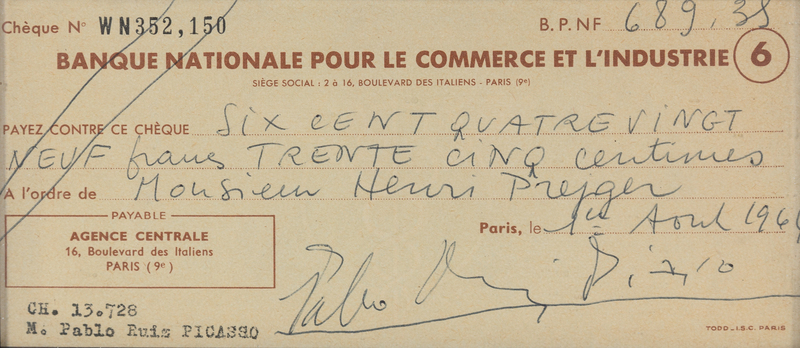 Chèque N° WN352,150 B.P.NF 689,35
BANQUE NATIONALE POUR LE COMMERCE ET L'INDUSTRIE 6
SIÈGE SOCIAL : 2 à 16, BOULEVARD DES ITALIENS - PARIS (9e)
PAYEZ CONTRE CE CHÈQUE SIX CENT QUATRE VINGT
NEUF francs TRENTE CINQ centimes
A l'ordre de Monsieur Henri
PAYABLE
Paris, le 1er Aout
AGENCE CENTRALE
16, Boulevard des Italiens
PARIS (9e)
Pablo Ruiz Picasso
CH. 13.728
M. Pablo Ruis PICASSO
TODD - I.S.C. PARIS